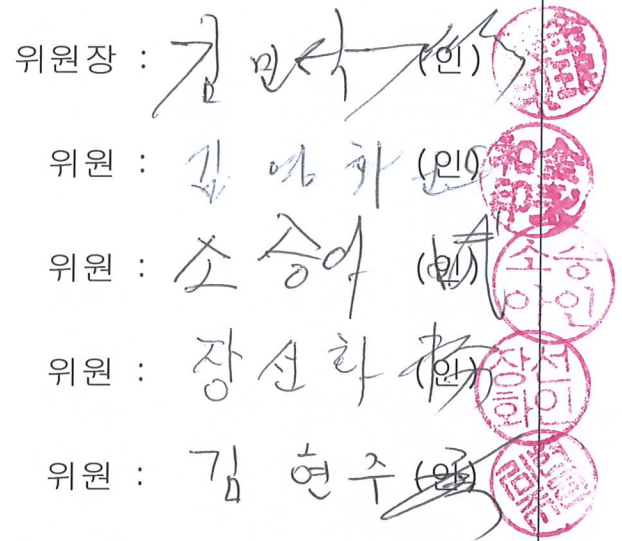 위원장 : 김민식 (인)
위원 : 김영화 (인)
위원 : 소승아 (인) 소승아인
위원 : 장선화 (인) 장선화인
위원 : 김현주 (인)